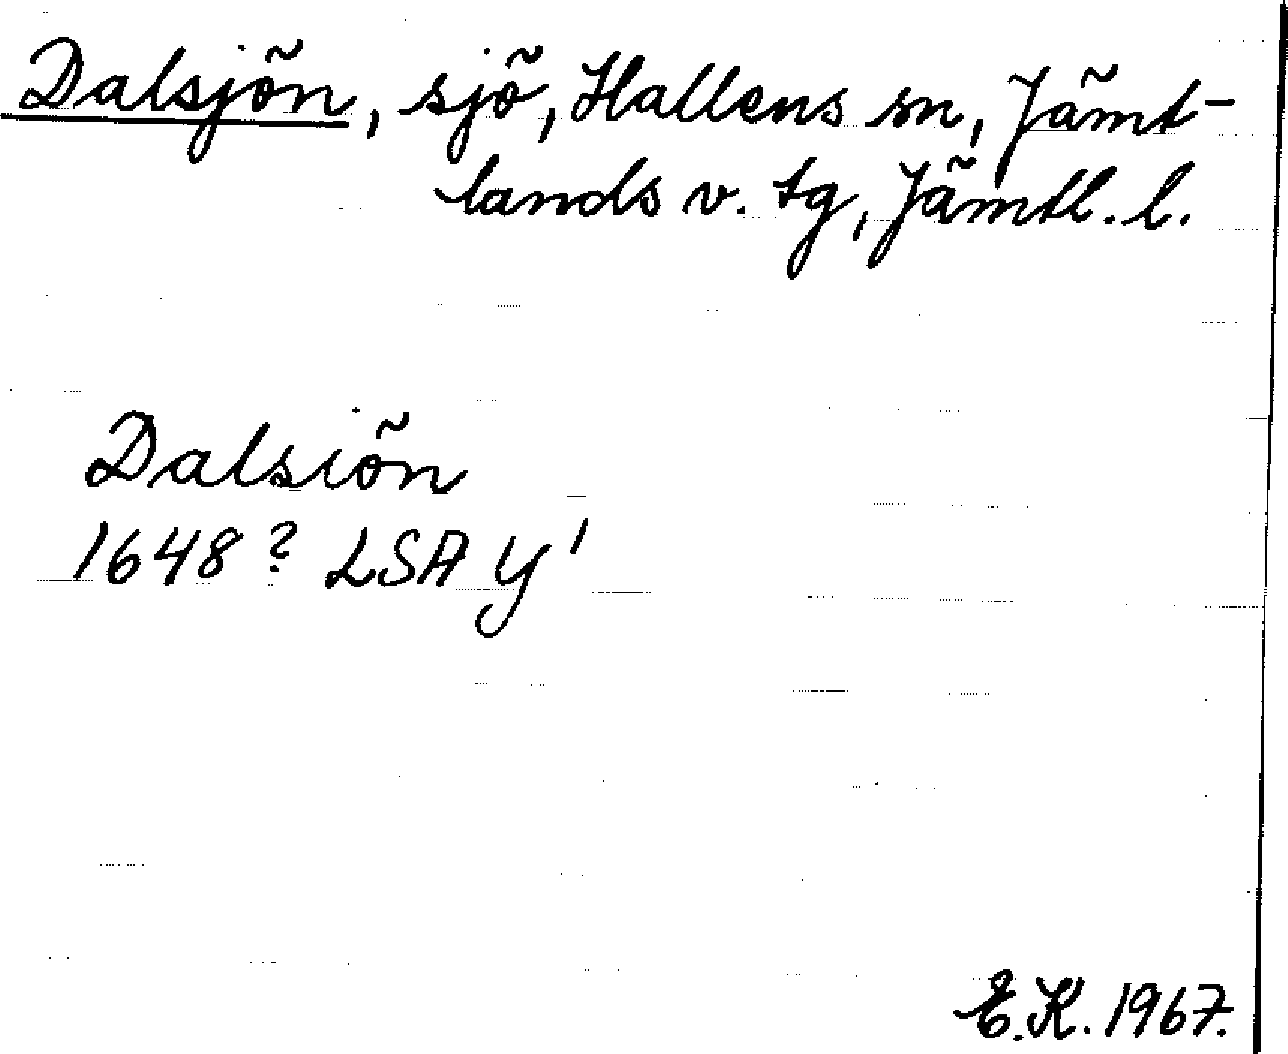 Dalsjön, sjö, Hallens sn, Jämt-
lands v. tg, Jämtl. l.
Dalsiön
1648? LSA Y¹
E.K. 1967.